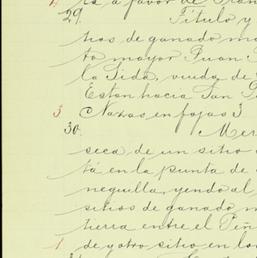 es a favor de Fran
29. Título y
tios de ganado ma
to mayor Juan
la Tida, viuda de
Estan hacia San
3 Naxas en fojas 3
30. Mer
seca, de un sitio
tá en la punta de
neguilla, yendo al
sitios de ganado m
tierra entre el Peñ
1 de yotro sitio en lo